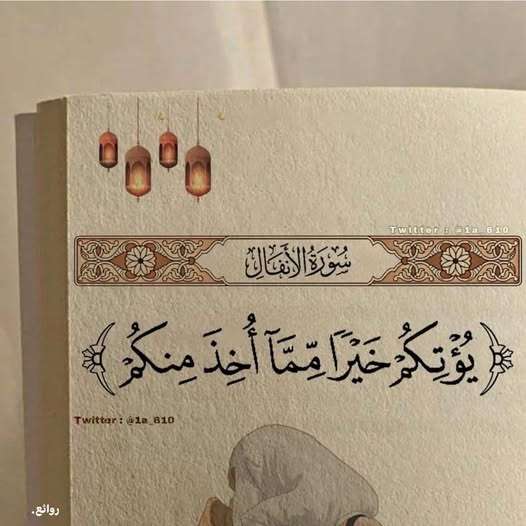 Twitter : @1a_610
سُورَةُ الأَنفَالِ
يُؤْتِكُمْ خَيْرًا مِّمَّآ أُخِذَ مِنكُمْ
Twitter : @1a_610
روائع.